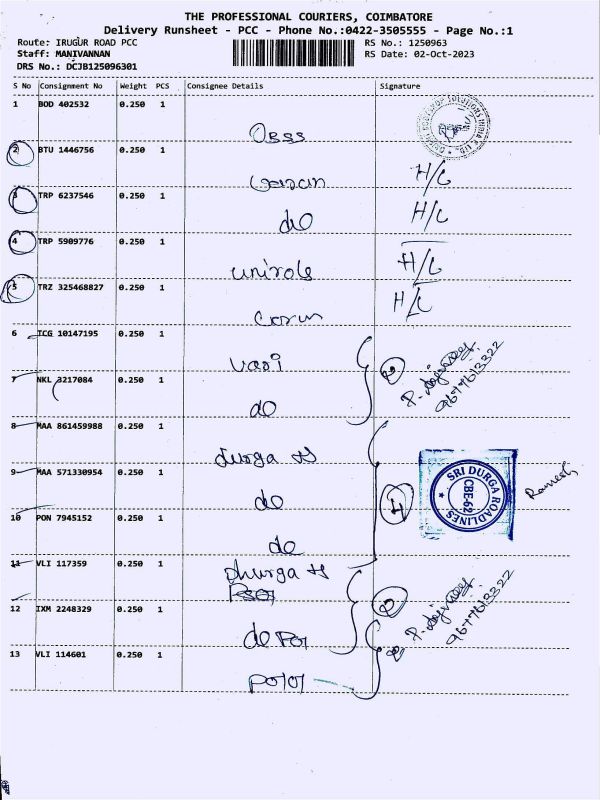 THE PROFESSIONAL COURIERS, COIMBATORE
Delivery Runsheet - PCC - Phone No.:0422-3505555 - Page No.:1
Route: IRUGUR ROAD PCC RS No.: 1250963
Staff: MANIVANNAN RS Date: 02-Oct-2023
DRS No.: DCJB125096301
S No Consignment No Weight PCS Consignee Details Signature
1 BOD 402532 0.250 1
2 BTU 1446756 0.250 1 H/L
3 TRP 6237546 0.250 1 do H/L
4 TRP 5909776 0.250 1 H/L
5 TRZ 325468827 0.250 1 H/L
6 TCG 10147195 0.250 1 Vasi
7 NKL 3217084 0.250 1 do 9677613322
8 MAA 861459988 0.250 1 durga
9 MAA 571330954 0.250 1 do 4 SRI DURGA ROADLINES CBE-62 Ramesh
10 PON 7945152 0.250 1 do
11 VLI 117359 0.250 1 Dhurga
12 IXM 2248329 0.250 1 9677613322
13 VLI 114601 0.250 1